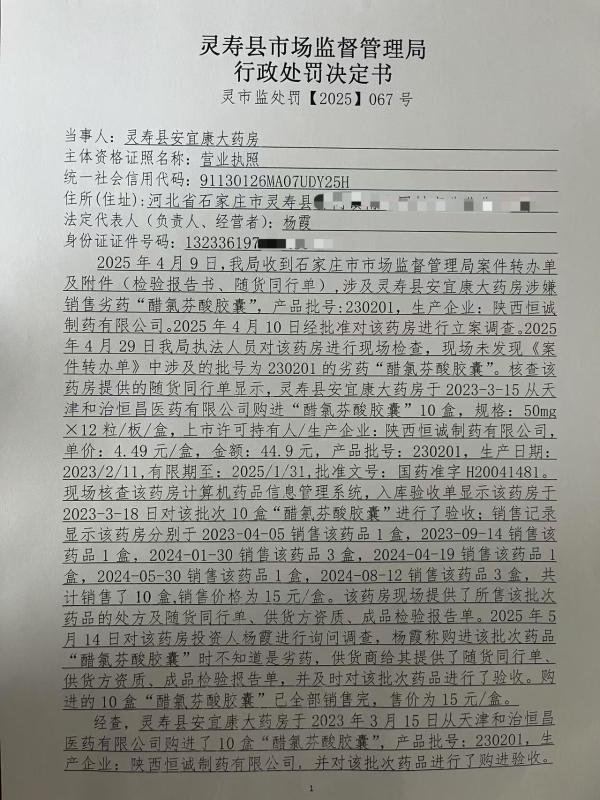 灵寿县市场监督管理局
行政处罚决定书
灵市监处罚【2025】067号
当事人：灵寿县安宜康大药房
主体资格证照名称：营业执照
统一社会信用代码：91130126MA07UDY25H
住所(住址):河北省石家庄市灵寿县
法定代表人（负责人、经营者）：杨霞
身份证证件号码：132336197
2025年4月9日,我局收到石家庄市市场监督管理局案件转办单
及附件（检验报告书、随货同行单）,涉及灵寿县安宜康大药房涉嫌
销售劣药“醋氯芬酸胶囊”，产品批号:230201，生产企业：陕西恒诚
制药有限公司。2025年4月10日经批准对该药房进行立案调查。2025
年4月29日我局执法人员对该药房进行现场检查，现场未发现《案
件转办单》中涉及的批号为230201的劣药“醋氯芬酸胶囊”。核查该
药房提供的随货同行单显示，灵寿县安宜康大药房于2023-3-15从天
津和治恒昌医药有限公司购进“醋氯芬酸胶囊”10盒，规格：50mg
×12粒/板/盒，上市许可持有人/生产企业：陕西恒诚制药有限公司，
单价：4.49元/盒，金额：44.9元，产品批号：230201，生产日期：
2023/2/11,有限期至：2025/1/31,批准文号：国药准字H20041481。
现场核查该药房计算机药品信息管理系统，入库验收单显示该药房于
2023-3-18日对该批次10盒“醋氯芬酸胶囊”进行了验收；销售记录
显示该药房分别于2023-04-05销售该药品1盒，2023-09-14销售该
药品1盒，2024-01-30销售该药品3盒，2024-04-19销售该药品1
盒，2024-05-30销售该药品1盒，2024-08-12销售该药品3盒，共
计销售了10盒,销售价格为15元/盒。该药房现场提供了所售该批次
药品的处方及随货同行单、供货方资质、成品检验报告单。2025年5
月14日对该药房投资人杨霞进行询问调查，杨霞称购进该批次药品
“醋氯芬酸胶囊”时不知道是劣药，供货商给其提供了随货同行单、
供货方资质、成品检验报告单，并及时对该批次药品进行了验收。购
进的10盒“醋氯芬酸胶囊”已全部销售完，售价为15元/盒。
经查，灵寿县安宜康大药房于2023年3月15日从天津和治恒昌
医药有限公司购进了10盒“醋氯芬酸胶囊”，产品批号：230201，生
产企业：陕西恒诚制药有限公司，并对该批次药品进行了购进验收。
1